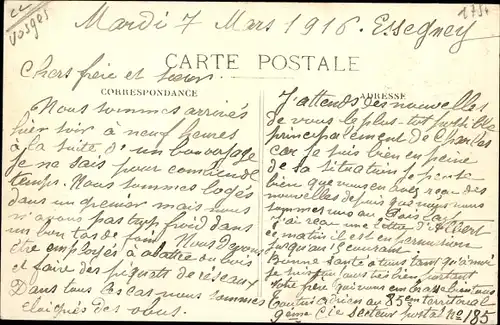 Vosges
1754
Mardi 7 Mars 1916. Essegney
CARTE POSTALE
Chers frère et sœur.
CORRESPONDANCE
Nous sommes arrivés
hier soir à neuf heures
à la suite d'un bon voyage
je ne sais pour combien de
temps. Nous sommes logés
dans un grenier mais nous
n'avons pas trop froid dans
un bon tas de foin. Nous devons
être employés à abattre du bois
et faire des piquets de réseaux
Dans tous les cas nous sommes
éloignés des obus.
ADRESSE
J'attends des nouvelles
de vous le plus tôt possible
principalement de Charles
car je suis bien en peine
de la situation je pense
bien que vous en avez reçu des
nouvelles depuis que nous nous
sommes vus au
j'ai reçu une lettre d'Albert
ce matin il est en permission
jusqu'au 15 courant
Bonne santé à tous tant qu'à moi
je suis toujours très bien portant
votre frère qui vous embrasse bien
Adrien au 85em territorial
9eme Cie secteur postal No 185